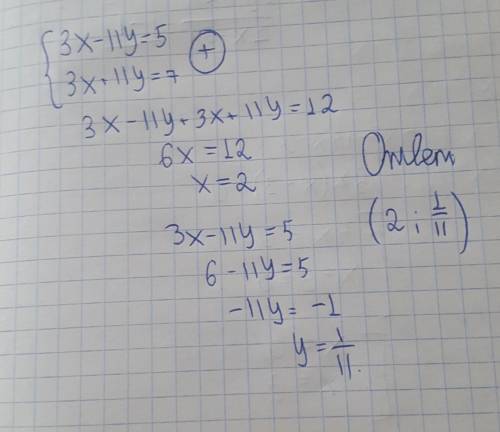 3x-11y=5
3x+11y=7 +
3x-11y+3x+11y=12
6x=12
x=2
3x-11y=5
6-11y=5
-11y=-1
y=1/11.
Ответ
(2; 1/11)